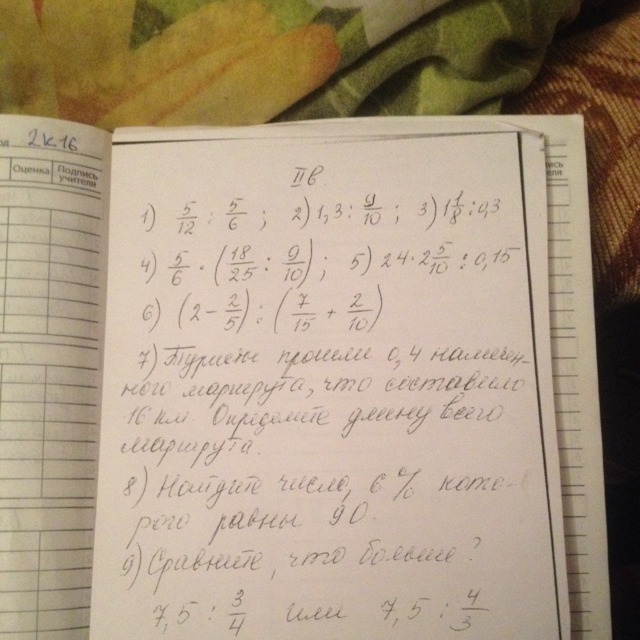 2к16
Оценка Подпись учителя
II в.
1) 5/12 : 5/6 ; 2) 1,3 : 9/10 ; 3) 1 1/8 : 0,3
4) 5/6 · (18/25 : 9/10) ; 5) 24 · 2 5/10 : 0,15
6) (2 - 2/5) : (7/15 + 2/10)
7) Туристы прошли 0,4 намечен-
ного маршрута, что составило
16 км. Определите длину всего
маршрута.
8) Найдите число, 6 % кото-
рого равны 90.
9) Сравните, что больше?
7,5 : 3/4 или 7,5 : 4/3